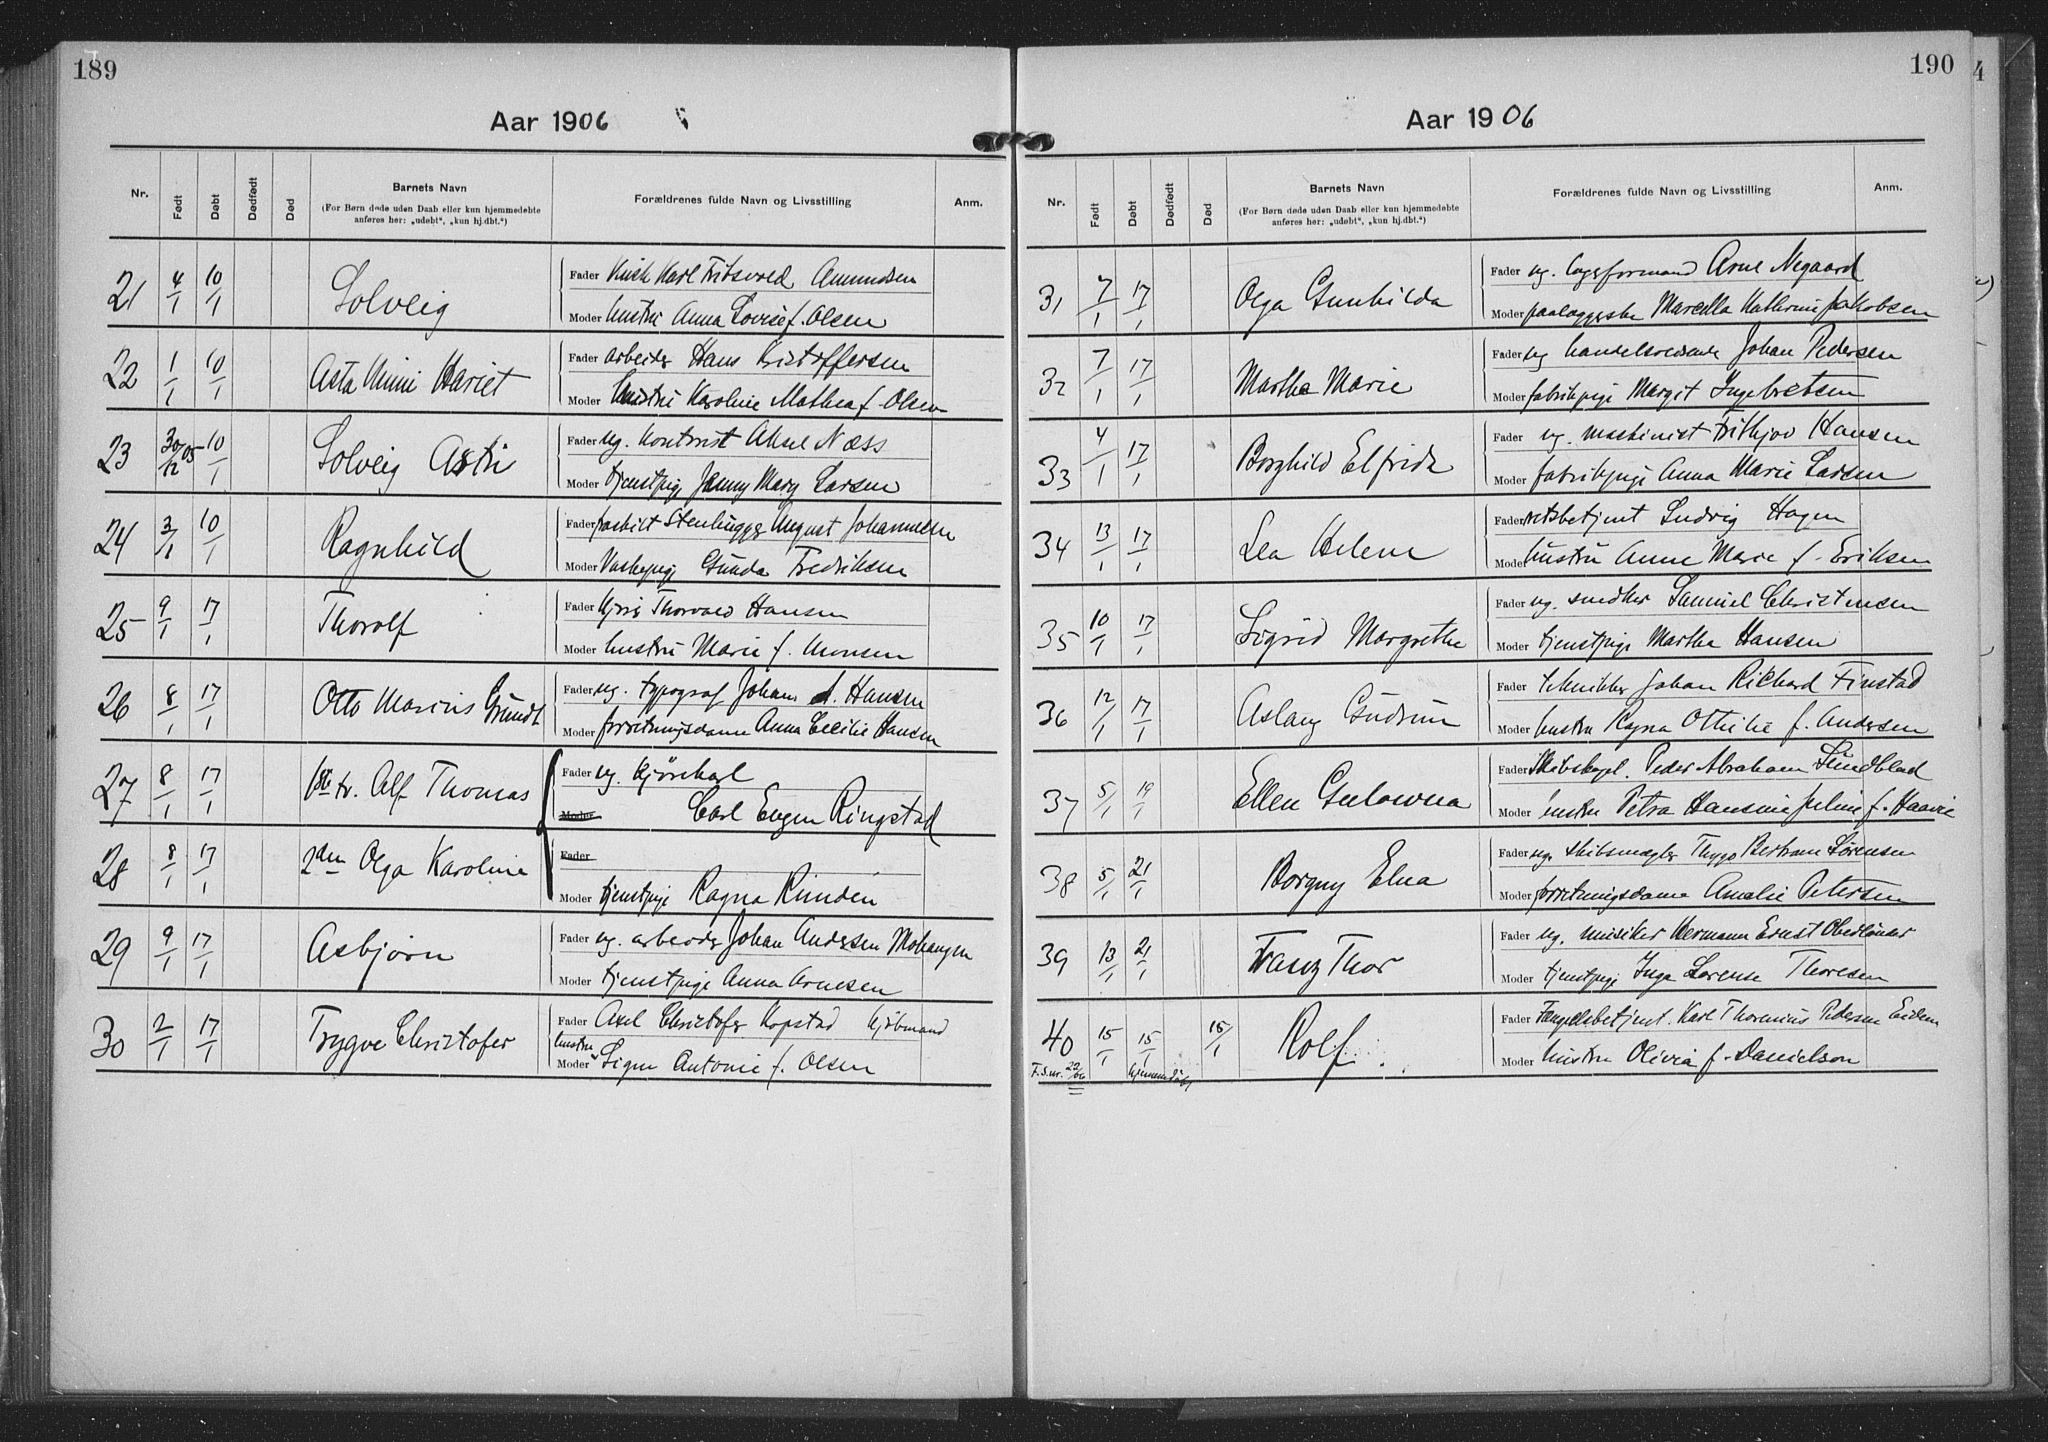 189
Aar 1906
Nr. Født Døbt Dødfødt Død Barnets Navn Forældrenes fulde Navn og Livsstilling Anm.
(For Børn døde uden Daab eller kun hjemmedøbte
anføres her: „udøbt“, „kun hj.dbt.“)
21 4/1 10/1 Solveig Fader Kusk Karl Amundsen
Moder hustru Anna Lovise f. Olsen
22 1/1 10/1 Asta Mimi Hariet Fader arbeider Hans Kristoffersen
Moder hustru Karoline Mathea f. Olsen
23 30/12 05 10/1 Solveig Astri Fader ug. kontorist Aksel Næss
Moder tjenstpige Jenny Mary Larsen
24 3/1 10/1 Ragnhild Fader forhbt Stenhugger August Johannesen
Moder Vaskepige Gunda Fredriksen
25 9/1 17/1 Thorolf Fader Kjøris Thorvald Hansen
Moder hustru Marie f. Monsen
26 8/1 17/1 Otto Marius Grundt Fader ug. typograf Johans A. Hansen
Moder forretningsdame Anna Cecilie Hansen
27 8/1 17/1 1ste tv. Alf Thomas Fader ug. kjørekarl
Moder Carl Eugen Ringstad
28 8/1 17/1 2den Olga Karoline Fader
Moder tjenstpige Ragna Rundén
29 9/1 17/1 Asbjørn Fader ug. arbeider Johan Andersen Mohaugen
Moder tjenstpige Anna Arnesen
30 2/1 17/1 Trygve Christofer Fader Axel Christofer Kopstad kjøbmand
hustru
Moder Signe Antonie f. Olsen
190
Aar 1906
Nr. Født Døbt Dødfødt Død Barnets Navn Forældrenes fulde Navn og Livsstilling Anm.
(For Børn døde uden Daab eller kun hjemmedøbte
anføres her: „udøbt“, „kun hj.dbt.“)
31 7/1 17/1 Olga Gunhilda Fader ug. lagsformand Arne Negaard
Moder paalæggerske Marcella Kathrine Jakobsen
32 7/1 17/1 Martha Marie Fader ug handelsreisende Johan Pedersen
Moder fabrikpige Margit Ingebretsen
33 4/1 17/1 Borghild Elfrida Fader ug. maskinist Fritjov Hansen
Moder fabrikpige Anna Marie Larsen
34 13/1 17/1 Lea Helene Fader retsbetjent Ludvig Hagen
Moder hustru Anne Marie f. Eriksen
35 10/1 17/1 Sigrid Margrethe Fader ug. snedker Samuel Christensen
Moder tjenstpige Martha Hansen
36 12/1 17/1 Aslaug Gudrun Fader Johan Richard Finstad
Moder hustru Ragna Othilie f. Andersen
37 5/1 19/1 Ellen Gulowna Fader Skibskapt. Peder Abraham Sundblad
Moder hustru Petra Hansine Juline f. Haavie
38 5/1 21/1 Borgny Elna Fader ug. skibsmægler Thygo Bertram Sørensen
Moder forretningsdame Amalie Petersen
39 13/1 21/1 Franz Thor Fader ug. musiker Hermann Ernst Oberländer
Moder tjenstpige Inga Lorense Thoresen
40 15/1 15/1 15/1 Rolf Fader Fængselsbetjent. Karl Thorenius Pedersen Eidem
Moder hustru Olivia f. Danielson
F.s.nr. 22/06 hjemmedøbt